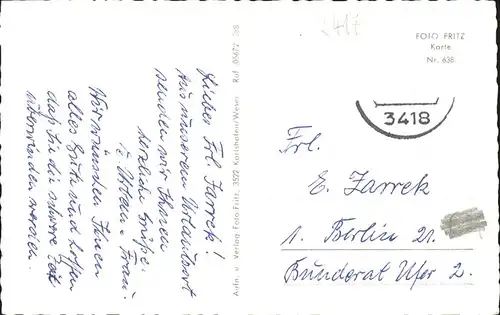 2417
FOTO FRITZ
Karte
Nr. 638
3418
Frl.
E. Jarrek
1. Berlin 21.
Bundesrat Ufer 2.
Liebes Frl. Jarrek!
Aus unserem Urlaubsort
senden wir Ihnen
herzliche Grüße.
u. Frau.
Wir wünschen Ihnen
alles Gute und hoffen
daß Sie die schwere Zeit
überwinden werden.
Aufn. u. Verlag Foto Fritz, 3522 Karlshafen/Weser Ruf 05672 / 368